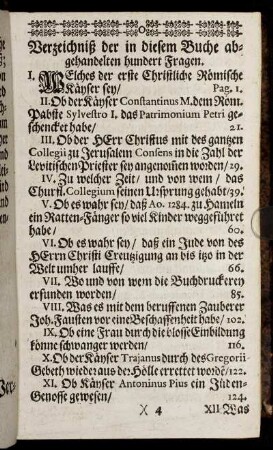 Verzeichniß der in diesem Buche ab-
gehandelten hundert Fragen.
I. WElches der erste Christliche Römische
Käyser sey/ Pag. 1.
II. Ob der Käyser Constantinus M. dem Röm.
Pabste Sylvestro I. das Patrimonium Petri ge-
schencket habe/ 21.
III. Ob der HErr Christus mit des gantzen
Collegii zu Jerusalem Consens in die Zahl der
Levitischen Priester sey angenommen worden/ 29.
IV. Zu welcher Zeit/ und von wem/ das
Churf. Collegium seinen Ursprung gehabt/ 39.
V. Ob es wahr sey/ daß Ao. 1284. zu Hameln
ein Ratten-Fänger so viel Kinder weggeführet
habe/ 60.
VI. Ob es wahr sey/ daß ein Jude von des
HErrn Christi Creutzigung an bis itzo in der
Welt umher lauffe/ 66.
VII. Wo und von wem die Buchdruckerey
erfunden worden/ 85.
VIII. Was es mit dem beruffenen Zauberer
Joh. Fausten vor eine Beschaffenheit habe/ 102.
IX. Ob eine Frau durch die blosse Einbildung
könne schwanger werden/ 116.
X. Ob der Käyser Trajanus durch des Gregorii
Gebeth wieder aus der Hölle errettet wordē/ 122.
XI. Ob Käyser Antoninus Pius ein Jüden-
Genosse gewesen/ 124.
X 4 XII. Was